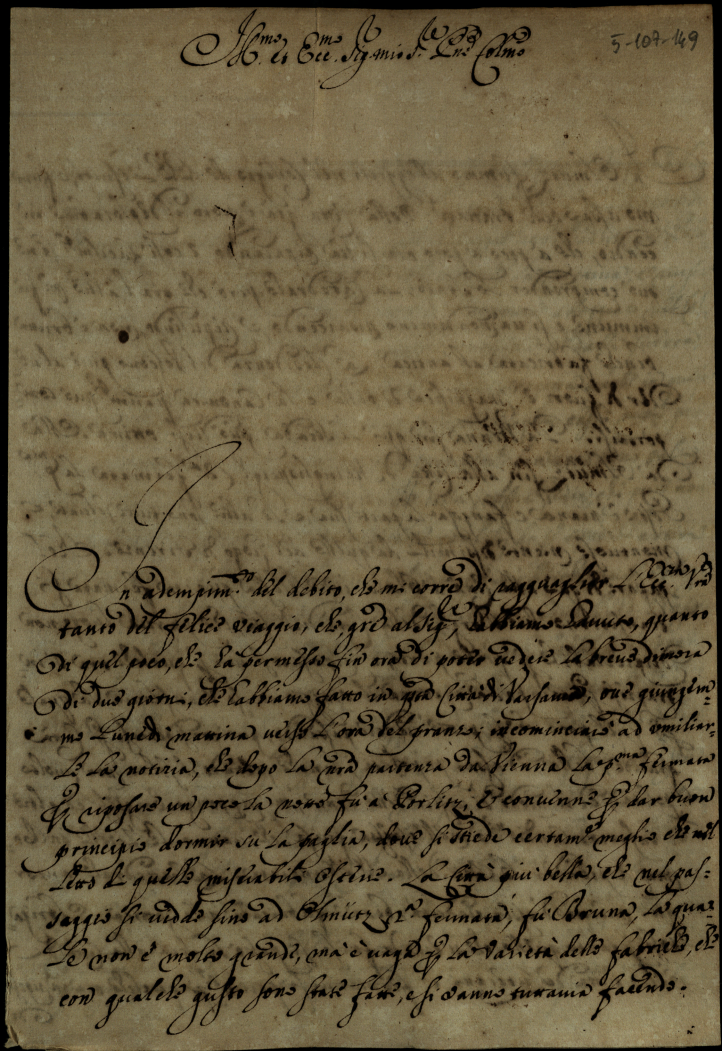 5-107-149
Ill.mo et Ecc.mo Sig.r mio Sig.r Pne Colmo
In adempim.to del debito, che mi corre di ragguagliar L'Ecc.za Vra
tanto del felice viaggio, che, grē al Sig.re, habbiamo havuto, quanto
di quel poco, che ha permesso fin ora di poter vedere la breve dimora
di due giorni, che habbiamo fatto in qta Città di Varsavia, ove giungem-
mo Lunedì mattina verso l'ora del pranzo; incomincierò ad umiliar-
Le la notizia, che dopo la nrā partenza da Vienna la p.ma fermata
per riposare un poco la notte fù a Porlitz, e convenne per dar buon
principio dormir sù la paglia, dove si stiede certam.te meglio che nel
letto di quelle miserabili Osterie. La Città più bella, che nel pas-
saggio si vedde sino ad Olmütz 2.a fermata, fù Bruna, la qua-
le non è molto grande, mà è vaga per la varietà delle fabriche, che
con qualche gusto sono state fatte, e si vanno tuttavia facendo.